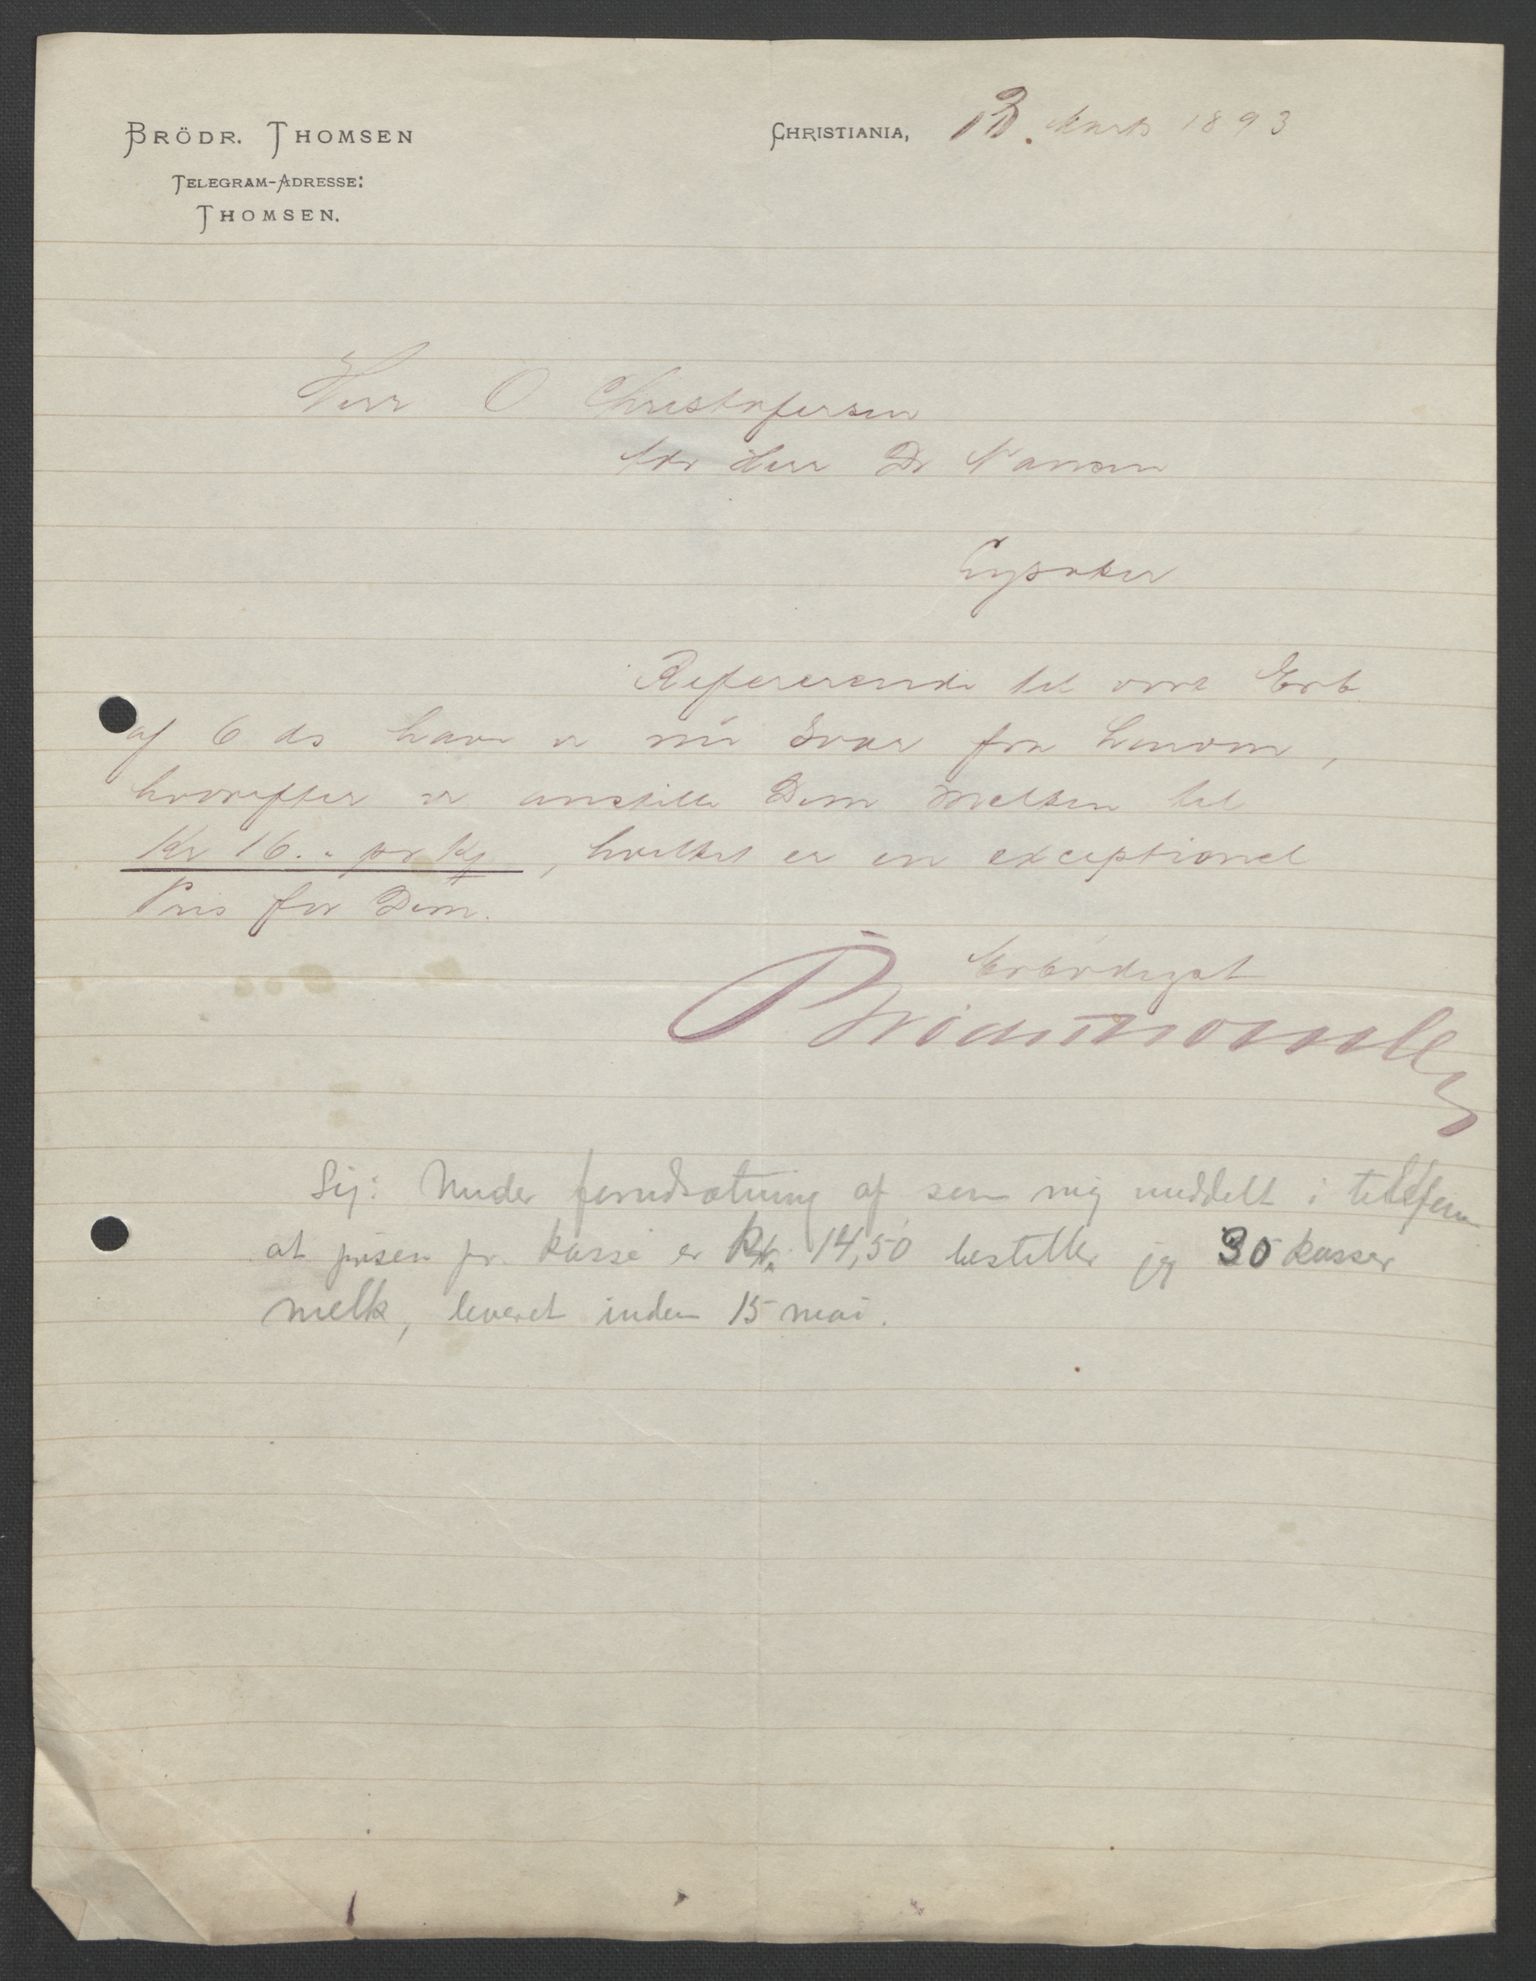 BRÖDR. THOMSEN
TELEGRAM-ADRESSE:
THOMSEN.
CHRISTIANIA, 13. Marts 1893
Herr O Christofersen
Adr Herr Dr Nansen
Lysaker
Refererende til vort Erb.
af 6 ds have vi nu Svar fra Husene,
hvorefter vi anstille Dem Melken til
Kr 16.- pr Ks, hvilket er en exceptionel
Pris for Dem.
Erbödigst
Brödr Thomsen
Sv: Under forudsætning af som mig meddelt i telefon
at prisen pr. kasse er Kr. 14,50 bestiller jeg 30 kasser
melk, leveret inden 15 mai.